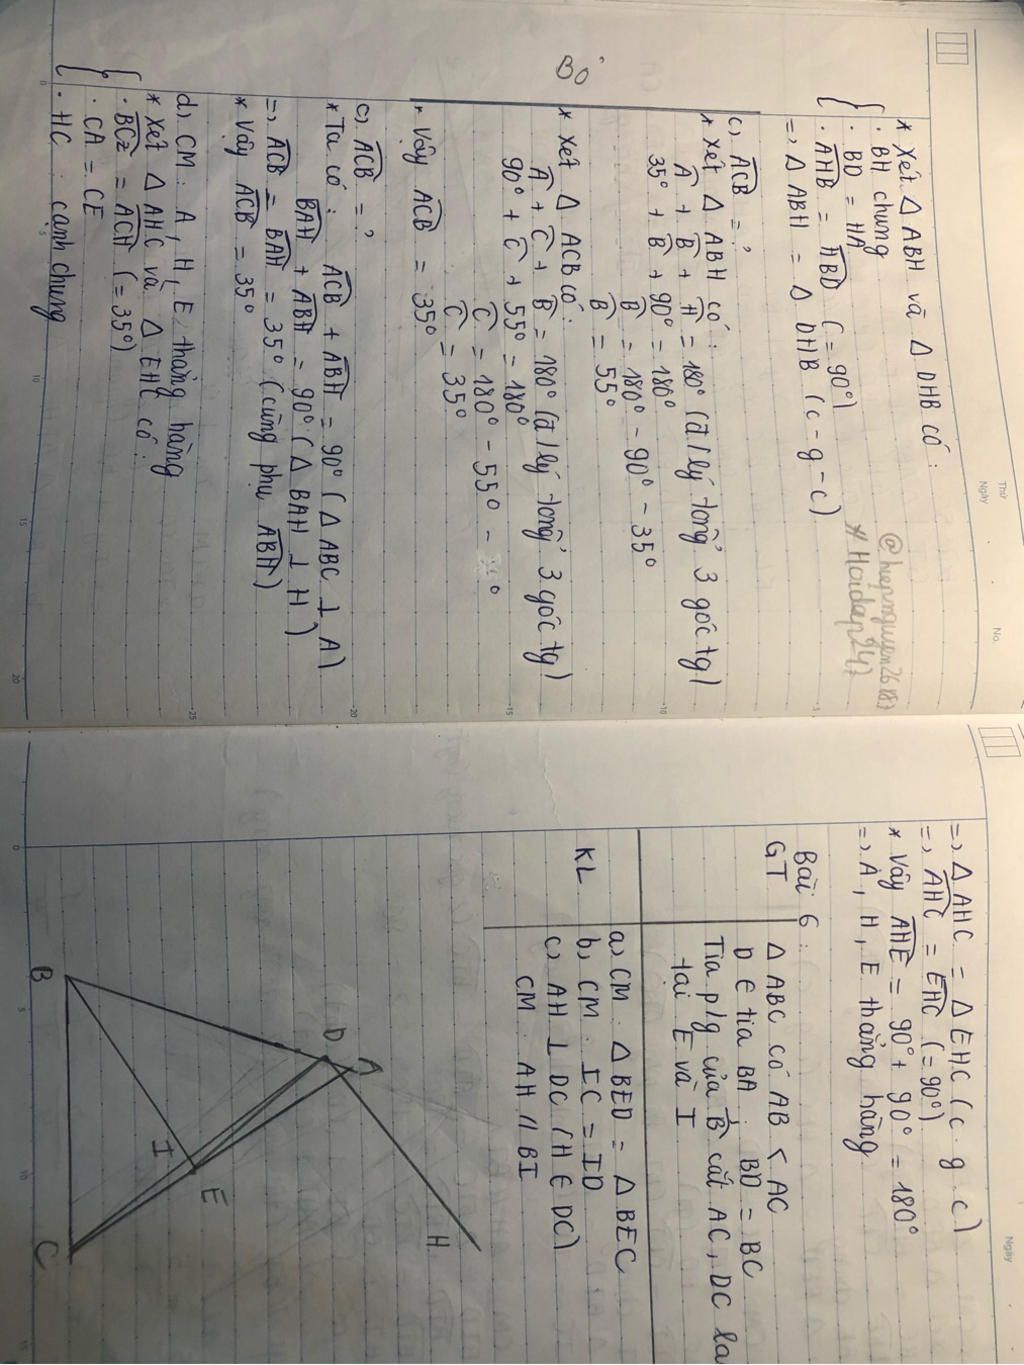 Thứ
Ngày
No.
* Xét △ ABH và △ DHB có:
· BH chung
· BD = HA
· AHB = ABD (= 90°)
=> △ ABH = △ DHB (c - g - c)
@hiepnguyen26187
# Hoidap247
c) ACB = ?
* Xét △ ABH có:
A + B + H = 180° (đ/lý tổng 3 góc tg)
35° + B + 90° = 180°
B = 180° - 90° - 35°
B = 55°
Bỏ
* Xét △ ACB có:
A + C + B = 180° (đ/lý tổng 3 góc tg)
90° + C + 55° = 180°
C = 180° - 55° -
C = 35°
* Vậy ACB = 35°
c) ACB = ?
* Ta có: ACB + ABH = 90° (△ ABC ⊥ A)
BAH + ABH = 90° (△ BAH ⊥ H)
=> ACB = BAH = 35° (cùng phụ ABH)
* Vậy ACB = 35°
d) CM: A, H, E thẳng hàng
* Xét △ AHC và △ EHC có:
= ACH (= 35°)
· CA = CE
· HC: cạnh chung
Ngày
=> △ AHC = △ EHC (c. g. c)
=> AHC = EHC (= 90°)
* Vậy AHE = 90° + 90° = 180°
=> A, H, E thẳng hàng
Bài 6:
GT △ ABC có AB < AC
D ∈ tia BA: BD = BC
Tia p/g của B cắt AC, DC
tại E và I
KL a) CM: △ BED = △ BEC
b) CM: IC = ID
c) AH ⊥ DC (H ∈ DC)
CM: AH // BI
D A
H
I E
B
C